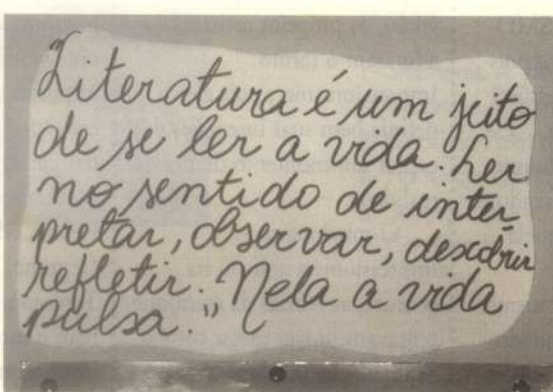 "Literatura é um jeito
de se ler a vida. Ler
no sentido de inter
pretar, observar, descobrir
refletir. Nela a vida
pulsa."